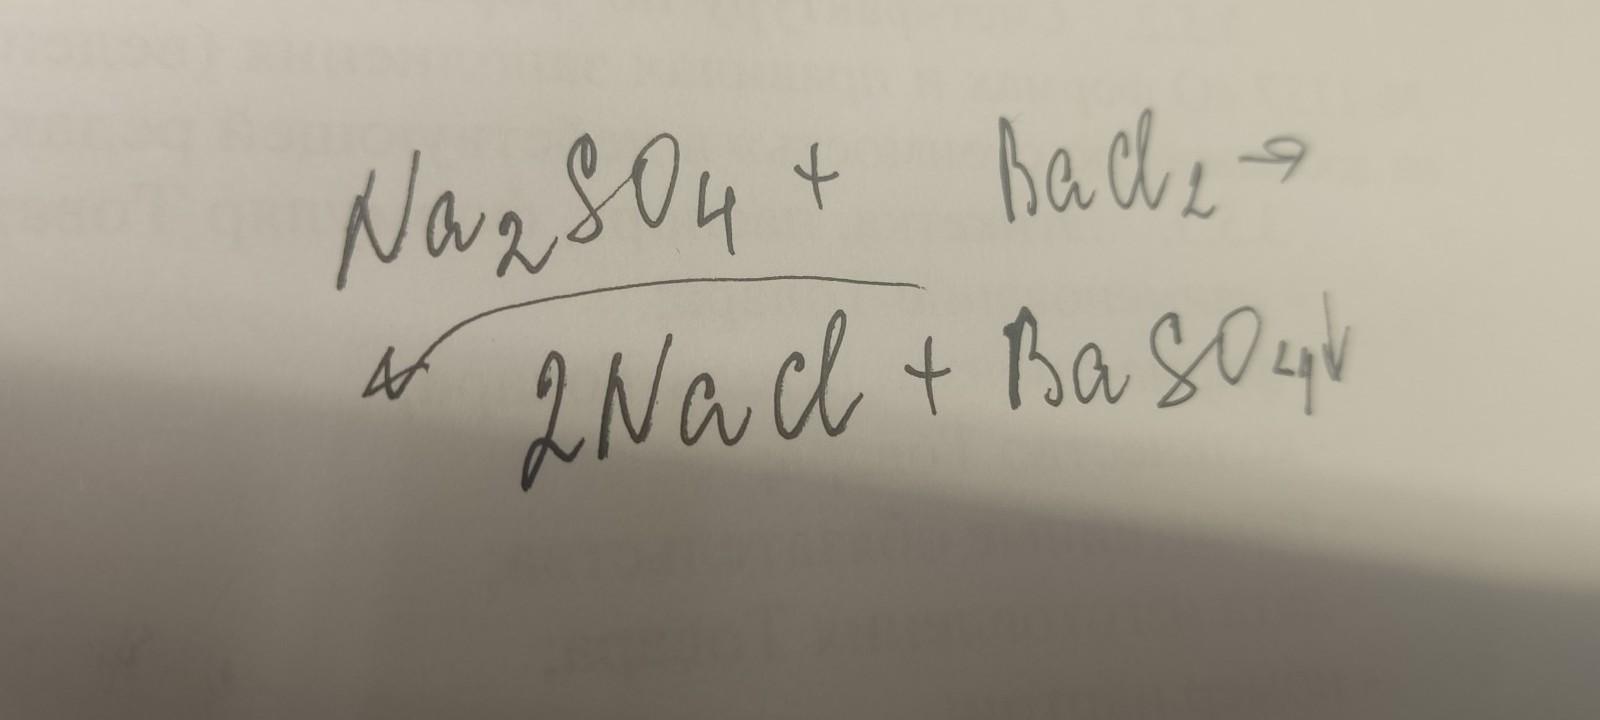 Na₂SO₄ + BaCl₂ →
2NaCl + BaSO₄↓